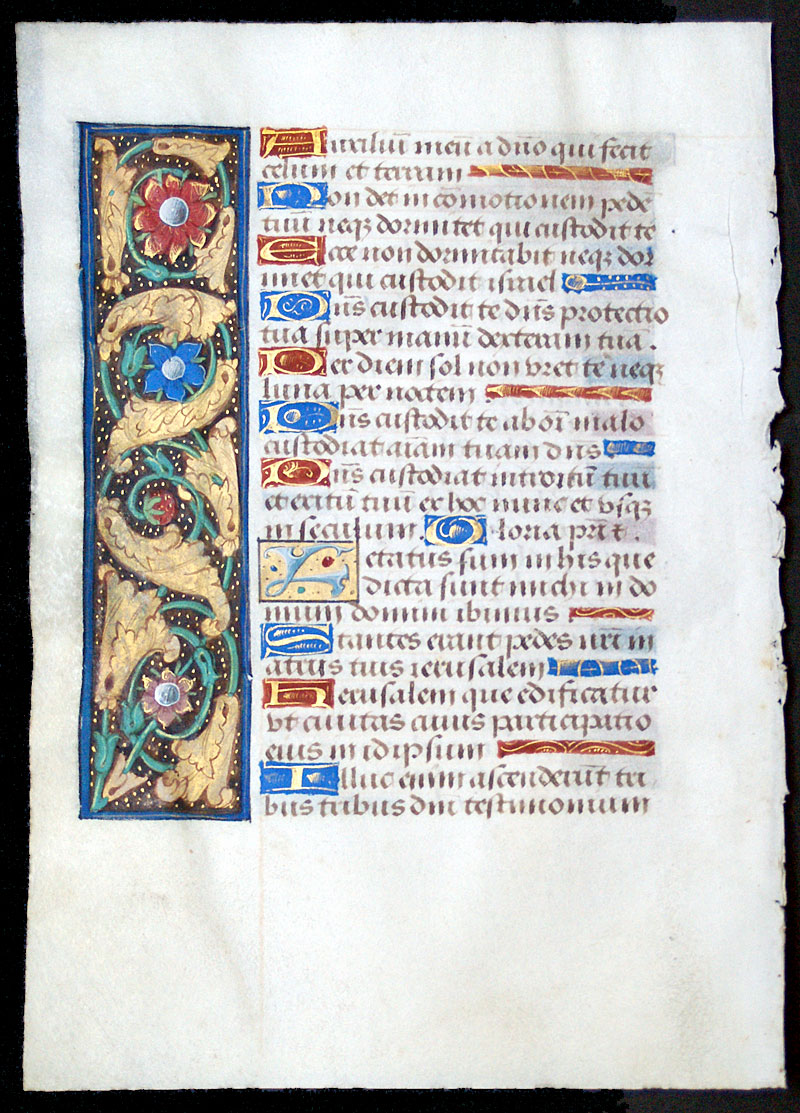 Auxiliū meū a dño qui fecit
celum et terram
Non det in cōmotionem pede
tuū neqz dormitet qui custodit te
Ecce non dormitabit neqz dor
miet qui custodit israel
Dñs custodit te dñs protectio
tua super manū dexteram tuā .
Per diem sol non vret te neqz
luna per noctem .
Dñs custodit te ab oī malo
custodiat aīam tuam dñs
Dñs custodiat introitū tuū
et exitū tuū ex hoc nunc et vsqz
in seculum . Gloria pr̄i t .
Letatus sum in his que
dicta sunt michi in do
mum domini ibimus
Stantes erant pedes nr̄i in
atriis tuis ierusalem
Herusalem que edificatur
vt ciuitas cuius participatio
eius in idipsum
Illuc enim ascenderūt tri
bus tribus dñi testimonium